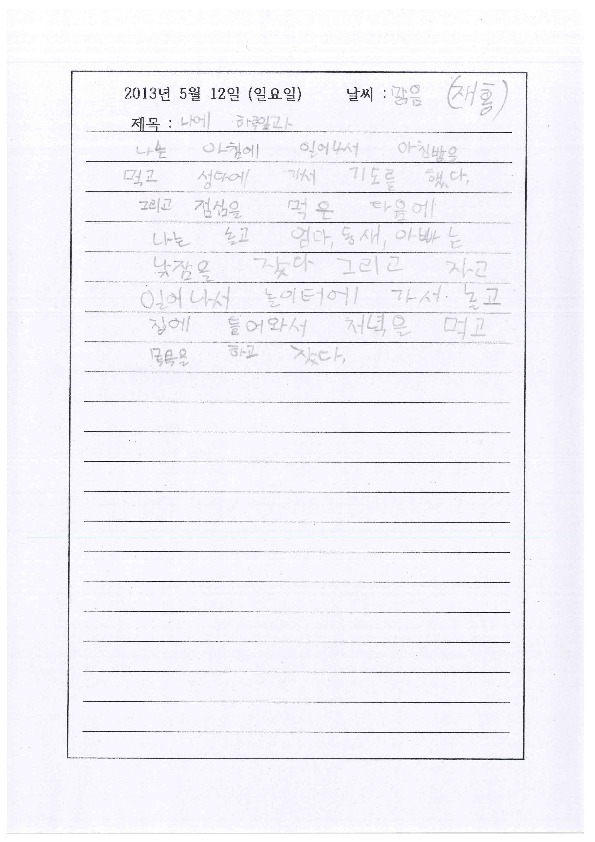 2013년 5월 12일 (일요일) 날씨 : 맑음 (재홍)
제목 : 나에 하루일과
나는 아침에 일어나서 아침밥을
먹고 성당에 가서 기도를 했다.
그리고 점심을 먹은 다음에
나는 놀고 엄마, 동새, 아빠는
낮잠을 잤다 그리고 자고
일어나서 놀이터에 가서 놀고
집에 들어와서 저녁을 먹고
목욕을 하고 잤다.